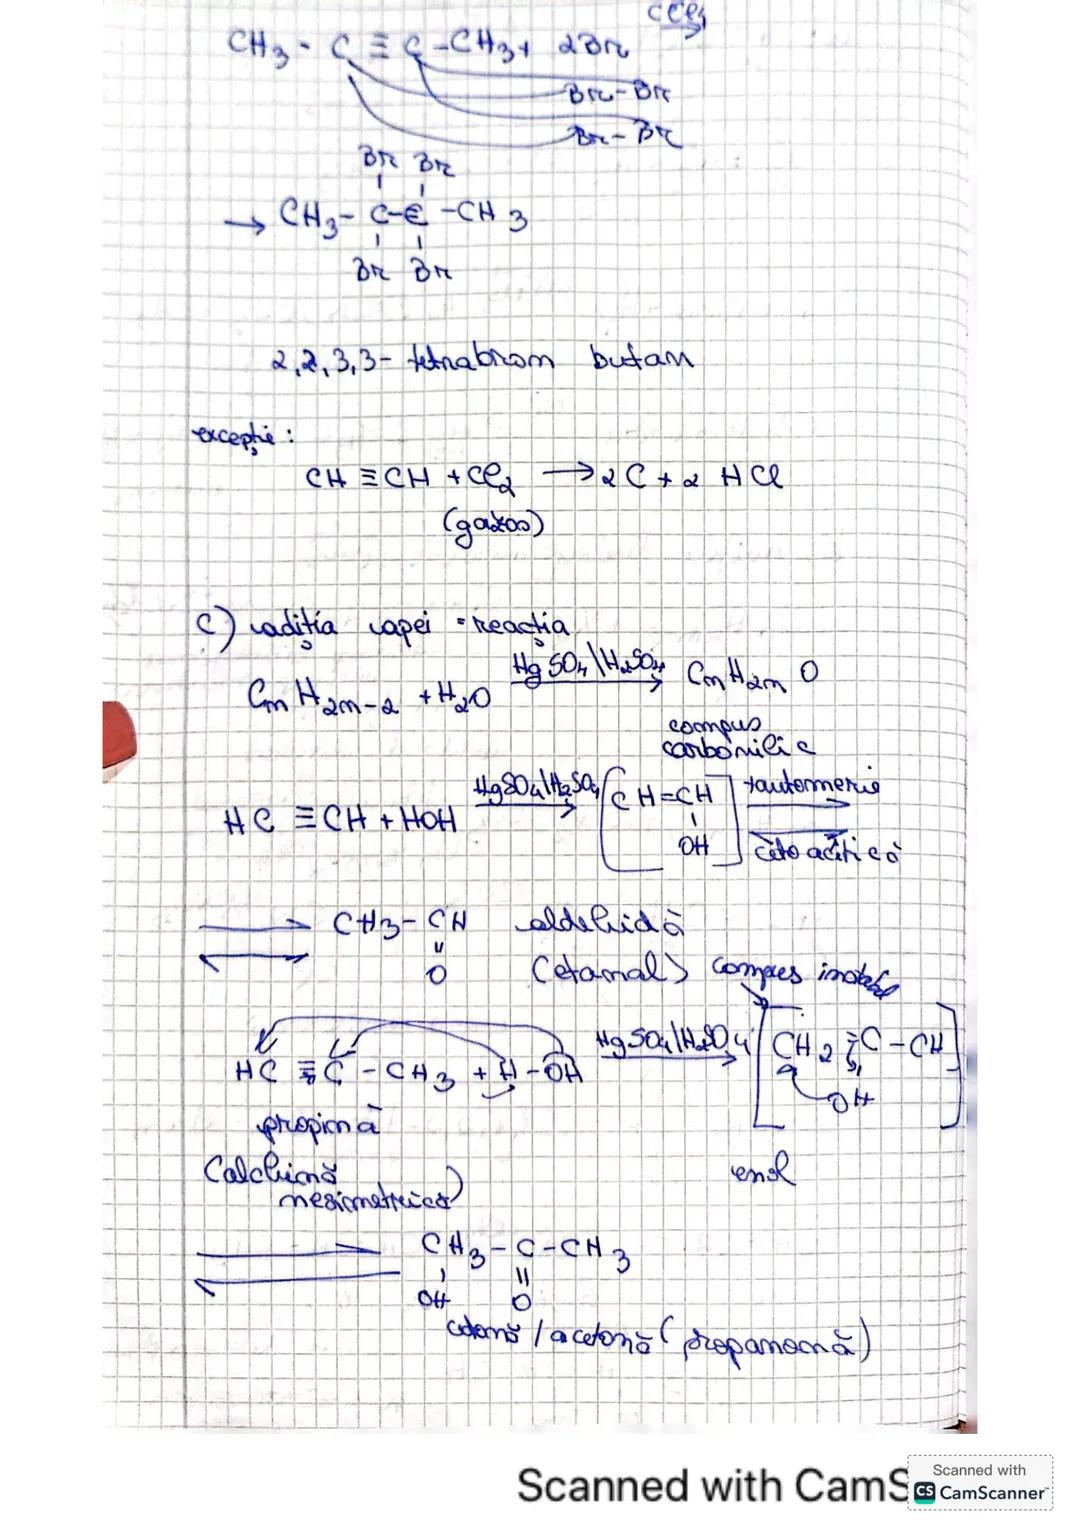 CCl₄
CH₃ - C ≡ C - CH₃ + 2Br₂
Br - Br
Br - Br
Br Br
→ CH₃ - C - C - CH₃
Br Br
2,2,3,3 - tetrabrom butan
excepție :
CH ≡ CH + Cl₂ → 2C + 2 HCl
(gazos)
c) adiția apei = reacția
CnH2n-2 + H₂O HgSO₄\H₂SO₄ → CnH2n O
compus
carbonilic
HC ≡ CH + HOH HgSO₄\H₂SO₄ → [CH=CH tautomerie
OH] ceto
⇌ CH₃ - CH aldehidă
O (etanal) compus instabil
HC ≡ C - CH₃ + H - OH HgSO₄\H₂SO₄ → [CH₂ = C - CH
OH]
propină
(alchină enol
nesimetrică)
⇌ CH₃ - C - CH₃
OH O
cetonă / acetonă (propanonă)
Scanned with CamS
Scanned with
CS CamScanner™